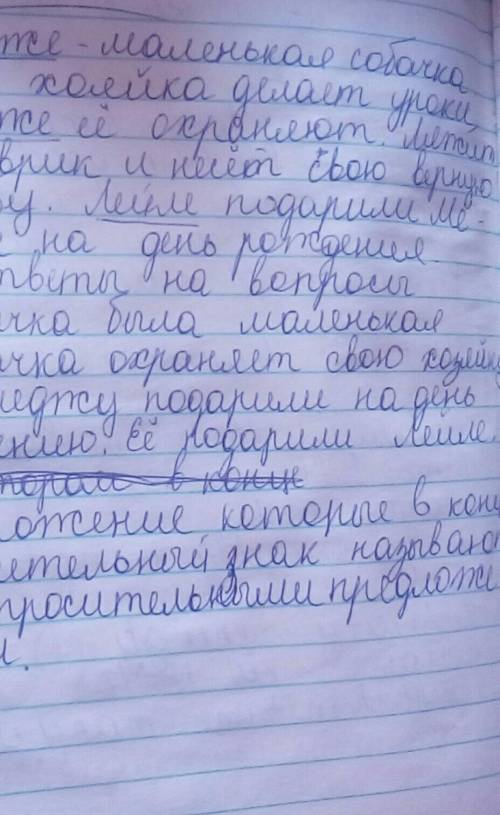 же - маленькая собачка
хозяйка делает уроки,
же её охраняют. Лежит
врик и несёт свою верную
у. Лейле подарили Ме-
на день рождения.
тветы на вопросы
чка была маленькая
чка охраняет свою хозяйк
еджу подарили на день
ению. Её подарили Лейле.
ложение которые в конц
ительный знак называю
просительными предложе
и.